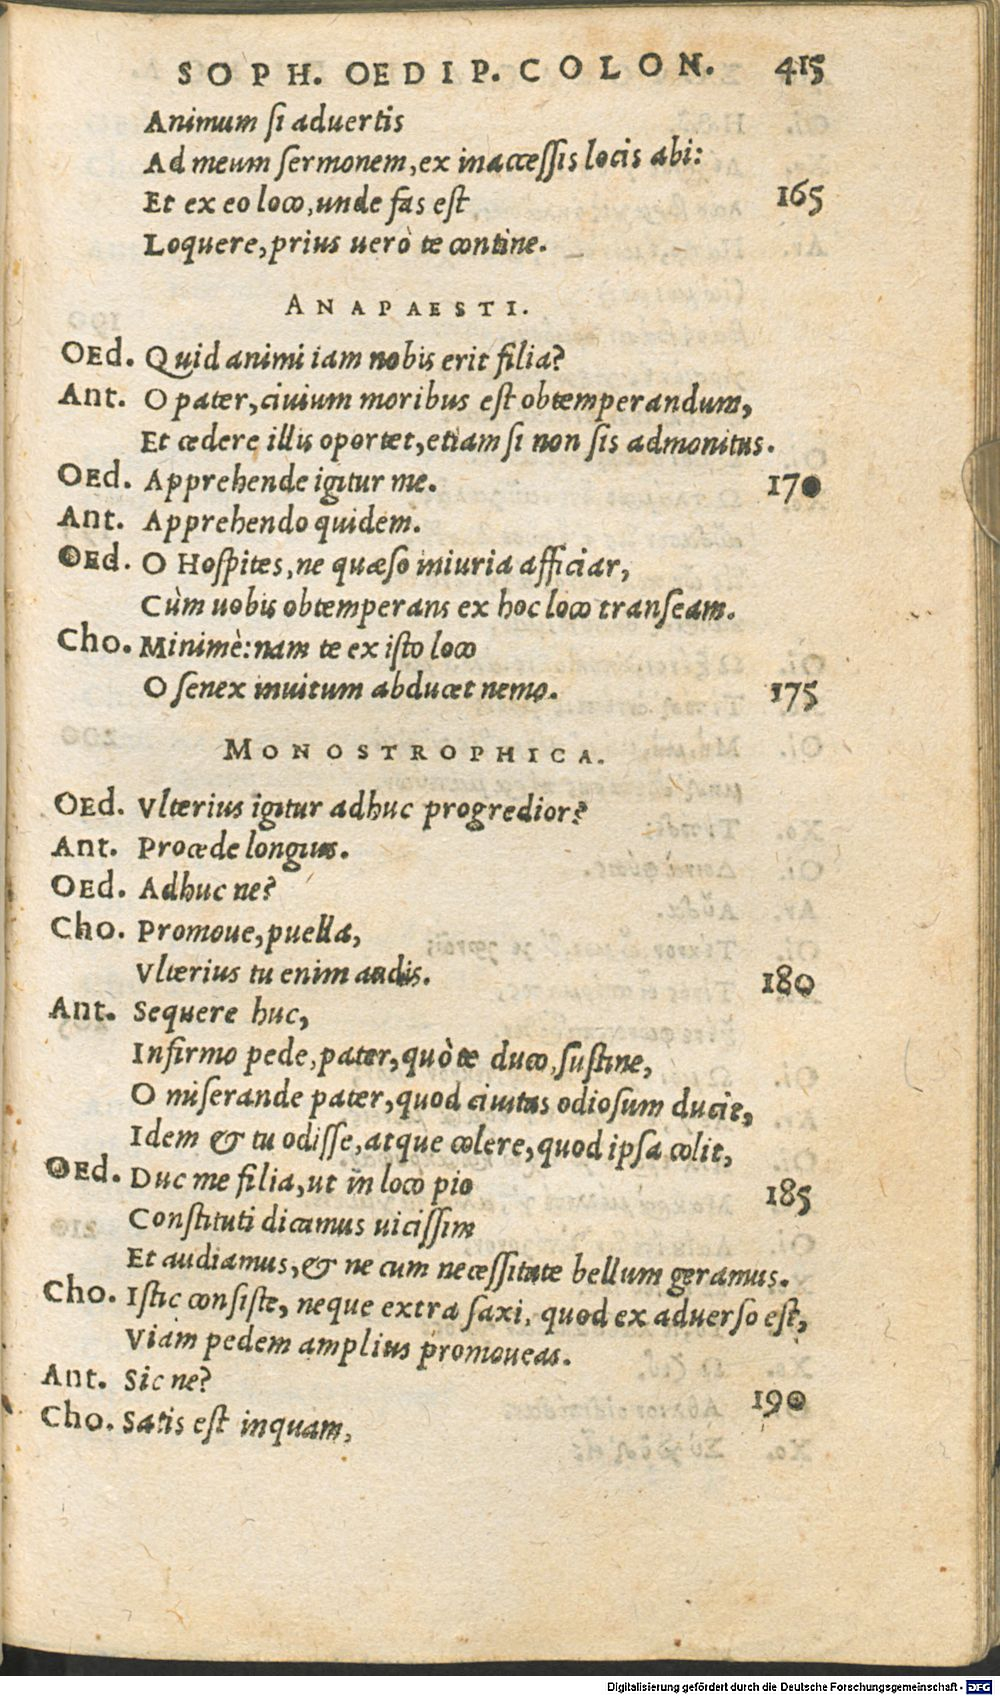 SOPH. OEDIP. COLON. 415
Animum si aduertis
Ad meum sermonem, ex inaccessis locis abi:
Et ex eo loco, unde fas est 165
Loquere, prius uerò te contine.
ANAPAESTI.
OEd. Quid animi iam nobis erit filia?
Ant. O pater, ciuium moribus est obtemperandum,
Et cedere illis oportet, etiam si non sis admonitus.
OEd. Apprehende igitur me. 170
Ant. Apprehendo quidem.
OEd. O Hospites, ne quæso iniuria afficiar,
Cùm uobis obtemperans ex hoc loco transeam.
Cho. Minimè: nam te ex isto loco
O senex inuitum abducet nemo. 175
MONOSTROPHICA.
OEd. Vlterius igitur adhuc progredior?
Ant. Procede longius.
OEd. Adhuc ne?
Cho. Promoue, puella,
Vlterius tu enim audis. 180
Ant. Sequere huc,
Infirmo pede, pater, quò te duco, sustine,
O miserande pater, quod ciuitas odiosum ducit,
Idem & tu odisse, atque colere, quod ipsa colit,
OEd. Duc me filia, ut in loco pio 185
Constituti dicamus uicissim
Et audiamus, & ne cum necessitate bellum geramus.
Cho. Istic consiste, neque extra saxi, quod ex aduerso est,
Viam pedem amplius promoueas.
Ant. Sic ne? 190
Cho. Satis est inquam,
Digitalisierung gefördert durch die Deutsche Forschungsgemeinschaft - DFG